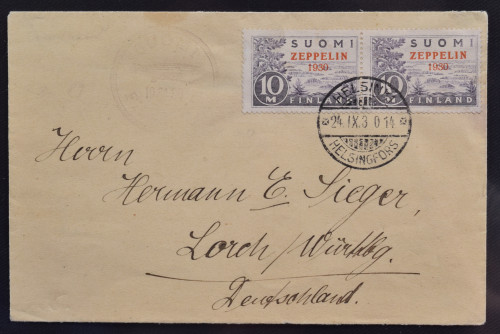 SUOMI
ZEPPELIN
1930
10 M
FINLAND
SUOMI
ZEPPELIN
1930
10 M
FINLAND
HELSINKI
24.IX.3 0 14
HELSINGFORS
Herrn
Hermann E. Sieger,
Lorch/Württbg.
Deutschland.